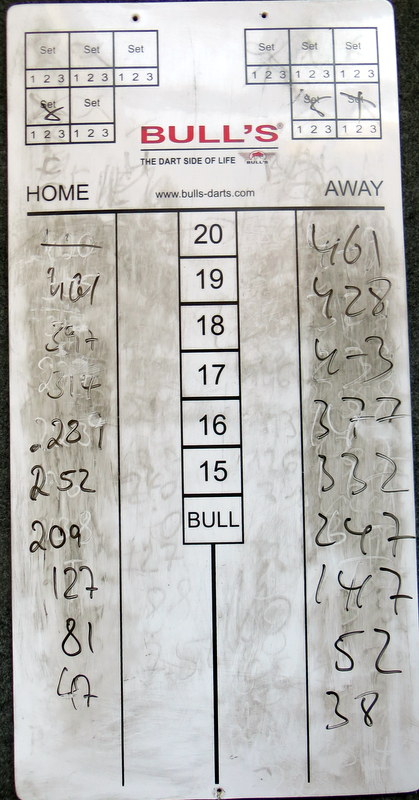 Set Set Set
1 2 3 1 2 3 1 2 3
Set Set
1 2 3 1 2 3
Set Set Set
1 2 3 1 2 3 1 2 3
Set Set
1 2 3 1 2 3
BULL'S®
THE DART SIDE OF LIFE BULL'S
www.bulls-darts.com
HOME
AWAY
20
19
18
17
16
15
BULL
461
397
314
281
252
209
127
81
47
461
428
4-3
377
332
247
147
52
38